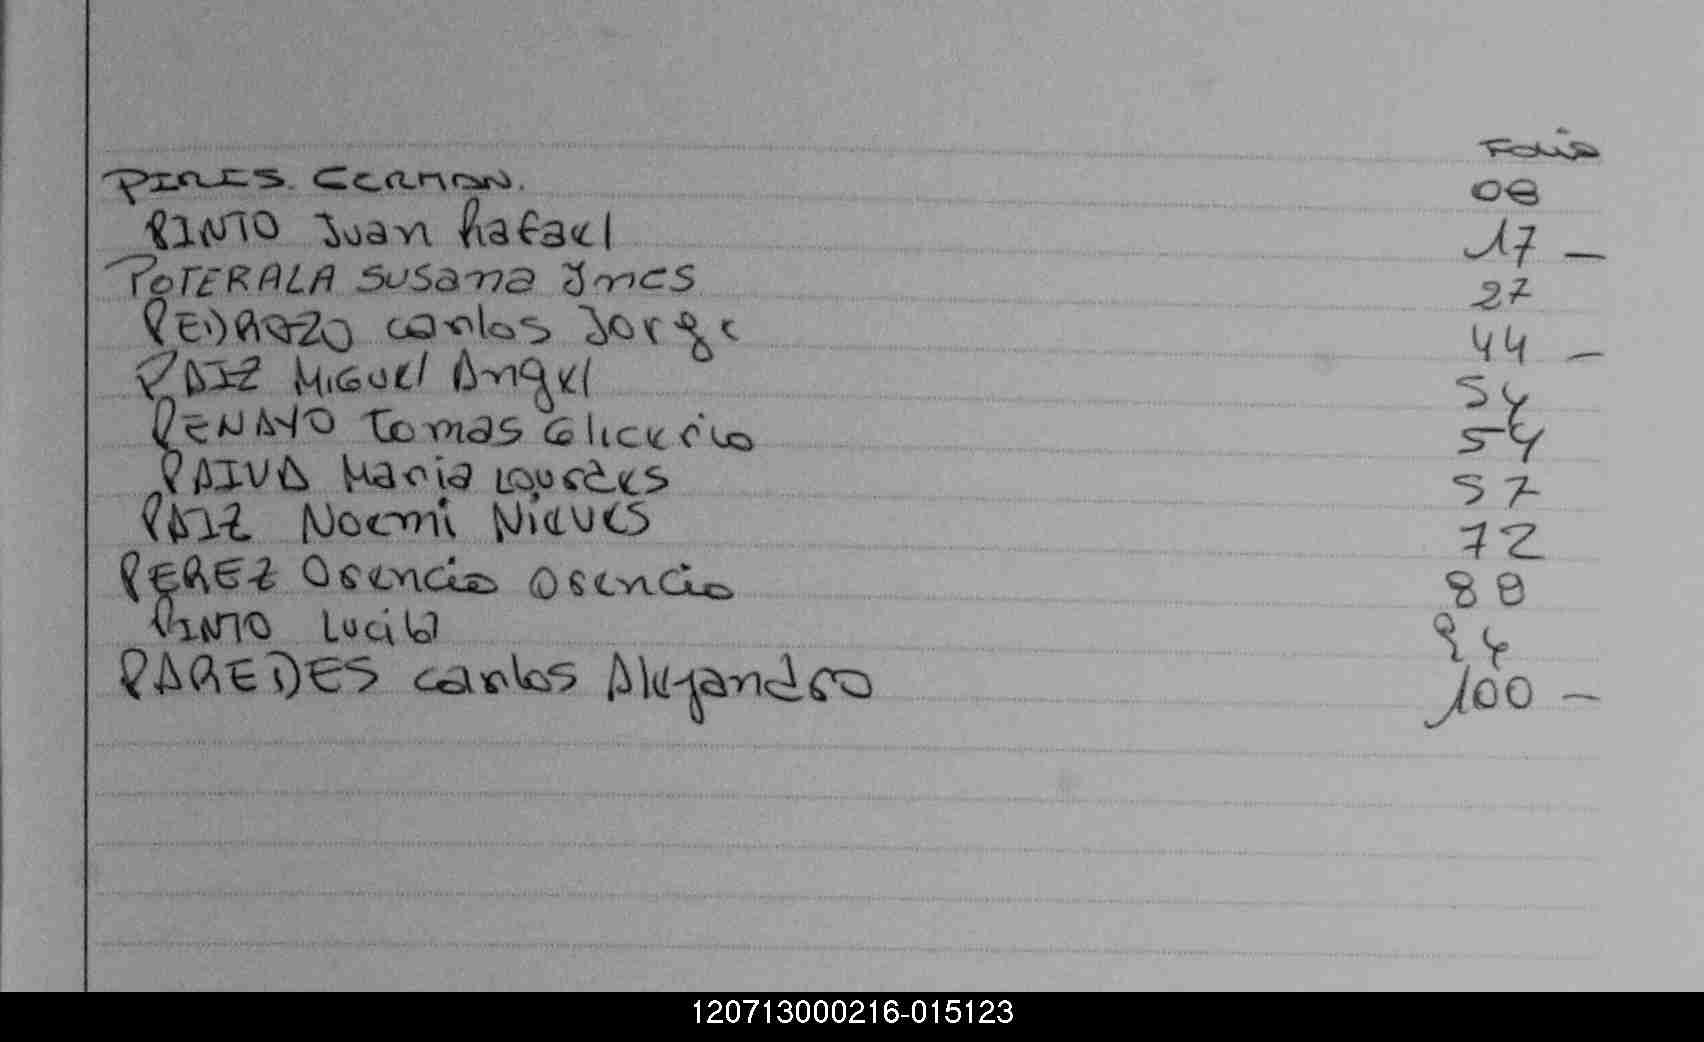 Folio
PIRIS. GERMAN. 08
PINTO Juan Rafael 17 —
POTERALA Susana Ynes 27
PEDROZO Carlos Jorge 44 —
PAIZ Miguel Angel 54
PENAYO Tomas Glicerio 54
PAIVA Maria Lourdes 57
PAIZ Noemi Nieves 72
PEREZ Osencio Osencio 88
PINTO Lucila 94
PAREDES Carlos Alejandro 100 —
120713000216-015123